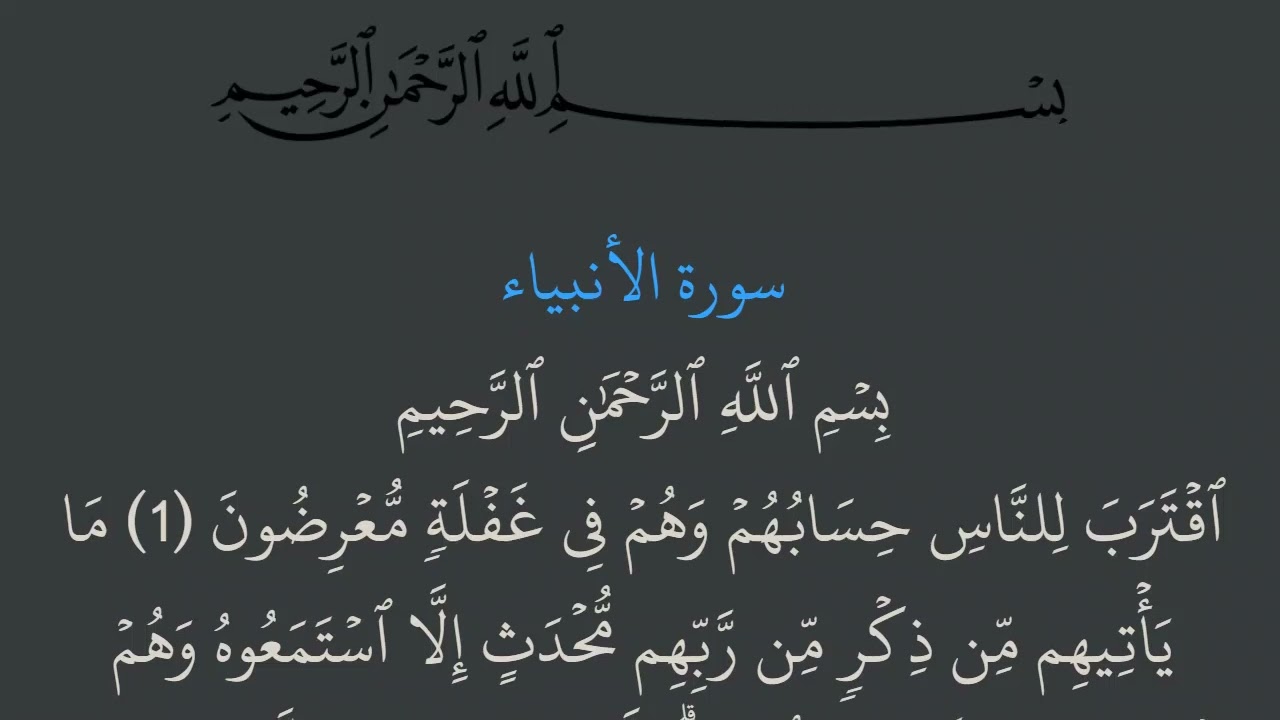 بِسْمِ ٱللَّهِ ٱلرَّحْمَٰنِ ٱلرَّحِيمِ
سورة الأنبياء
بِسْمِ ٱللَّهِ ٱلرَّحْمَٰنِ ٱلرَّحِيمِ
ٱقْتَرَبَ لِلنَّاسِ حِسَابُهُمْ وَهُمْ فِى غَفْلَةٍ مُّعْرِضُونَ (1) مَا
يَأْتِيهِم مِّن ذِكْرٍ مِّن رَّبِّهِم مُّحْدَثٍ إِلَّا ٱسْتَمَعُوهُ وَهُمْ